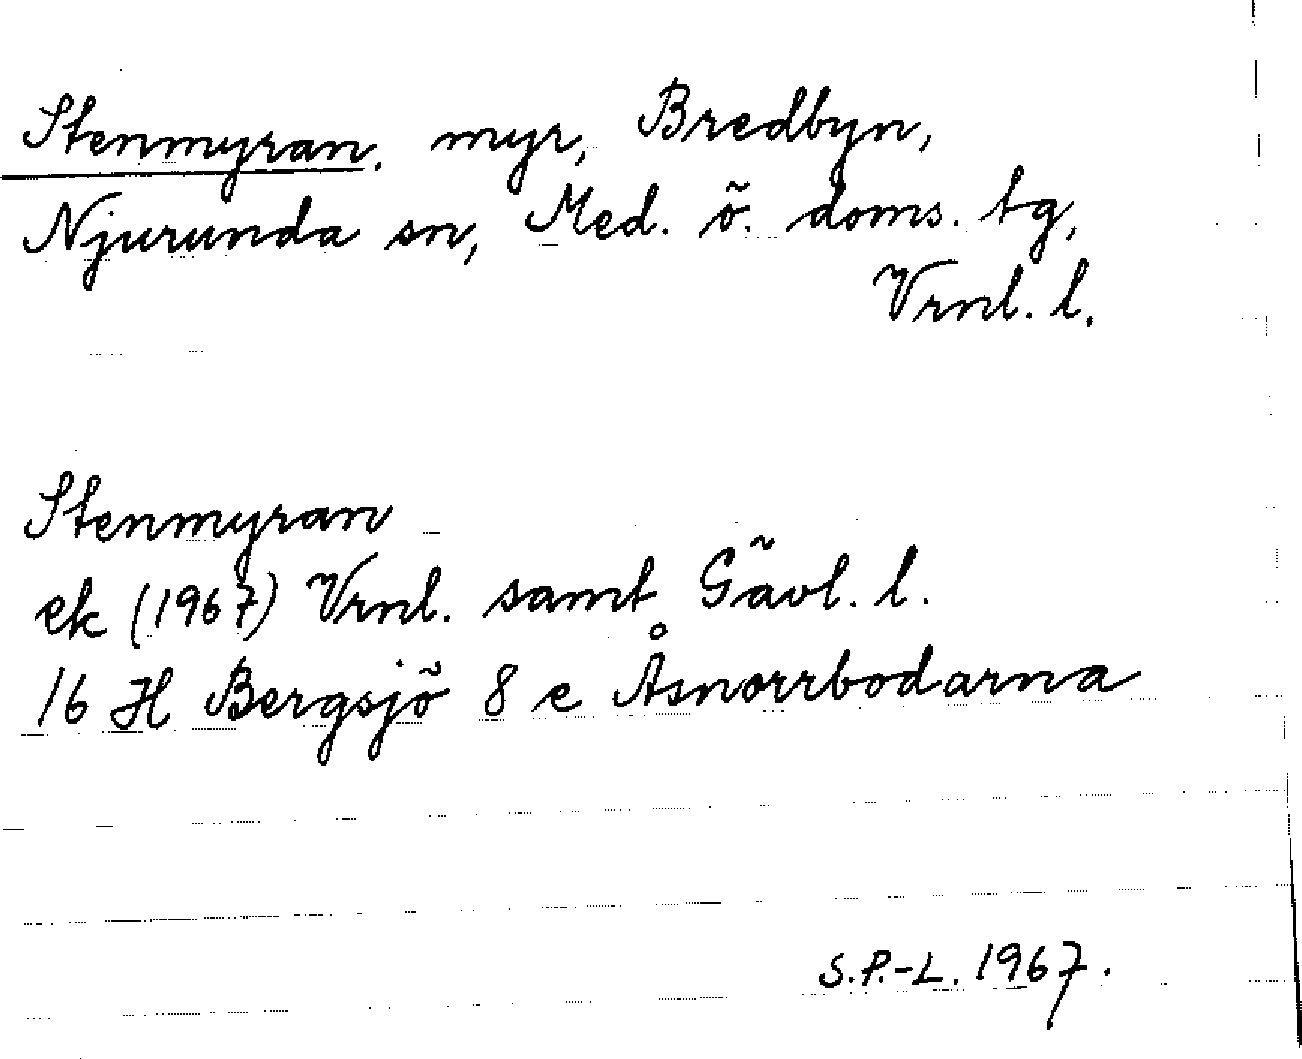 Stenmyran, myr, Bredbyn,
Njurunda sn, Med. ö. doms. tg,
Vrnl. l.
Stenmyran
ek (1967) Vrnl. samt Gävl. l.
16 H Bergsjö 8 e Åsnorrbodarna
S.P.-L. 1967.